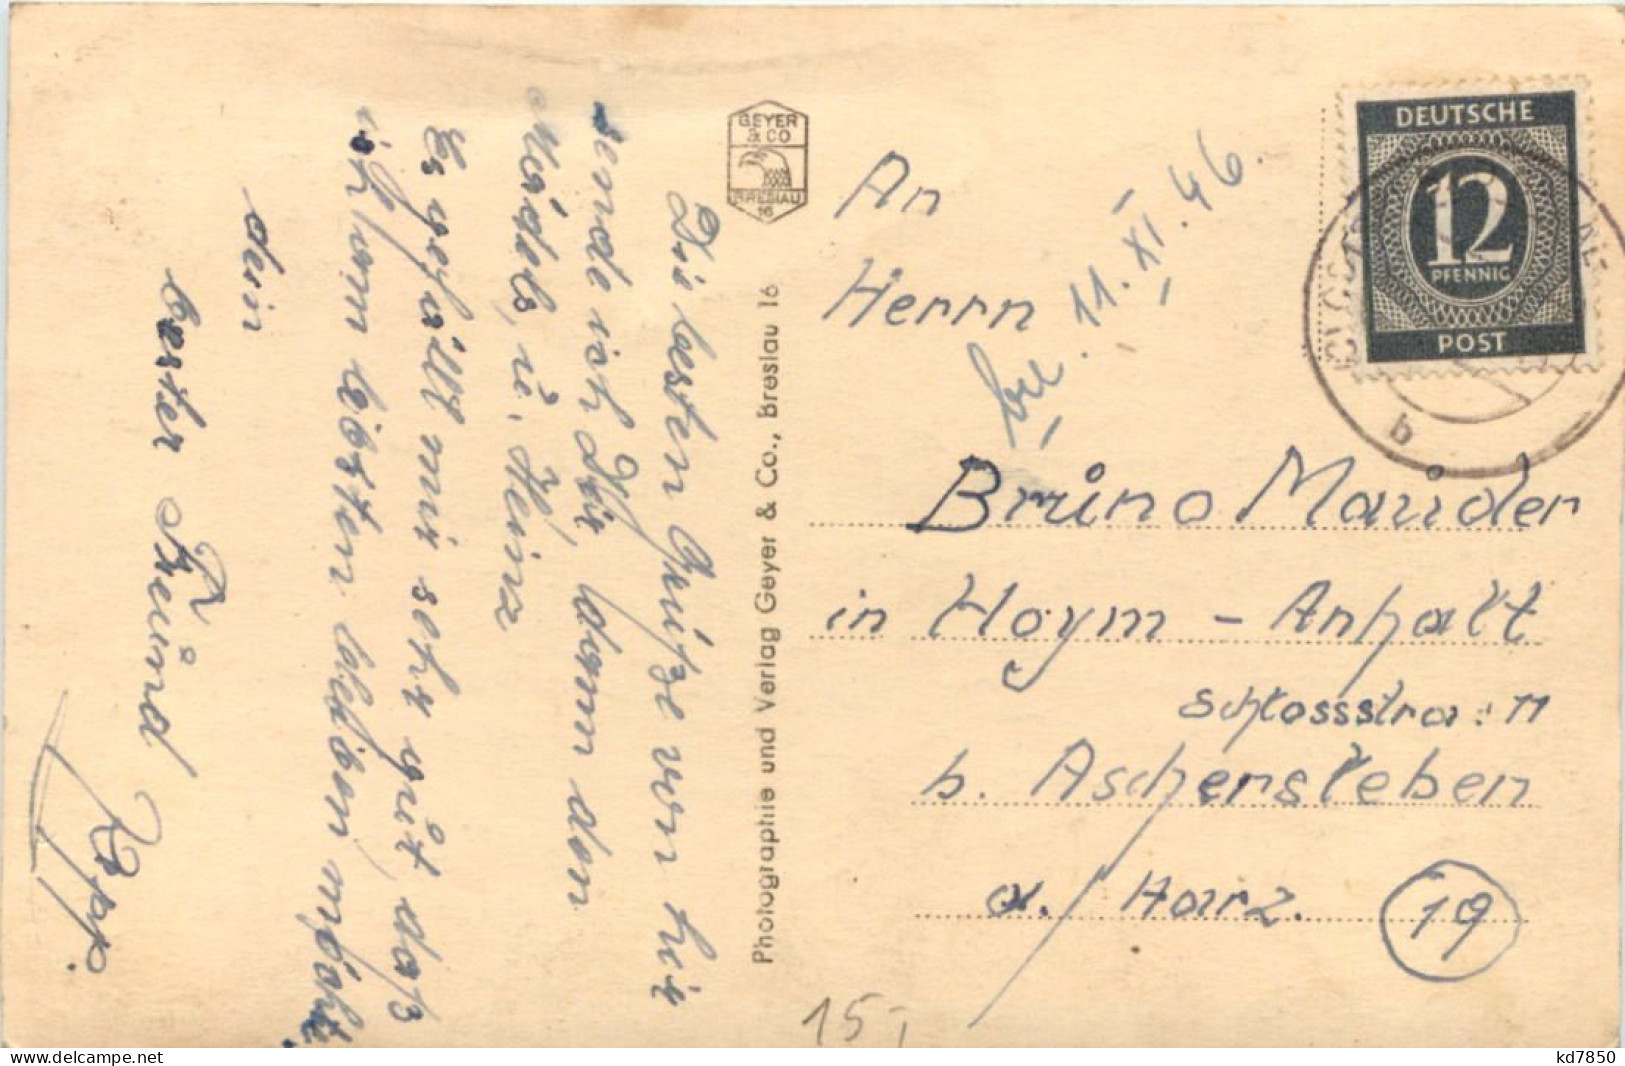 Die besten Grüße von hier
sende ich Dir, dann den
Mädels, u. Heinz
Es gefällt mir sehr gut, daß
ich am liebsten bleiben möchte.
dein
bester Freund
GEYER
& CO
BRESLAU
16
Photographie und Verlag Geyer & Co., Breslau 16
An
Herrn
11.XI.46.
Bruno Mauder
in Hoym - Anhalt
Schlossstra: 11
b. Aschersleben
a. Harz.
19
15,-
DEUTSCHE
12
PFENNIG
POST
b
www.delcampe.net
kd7850